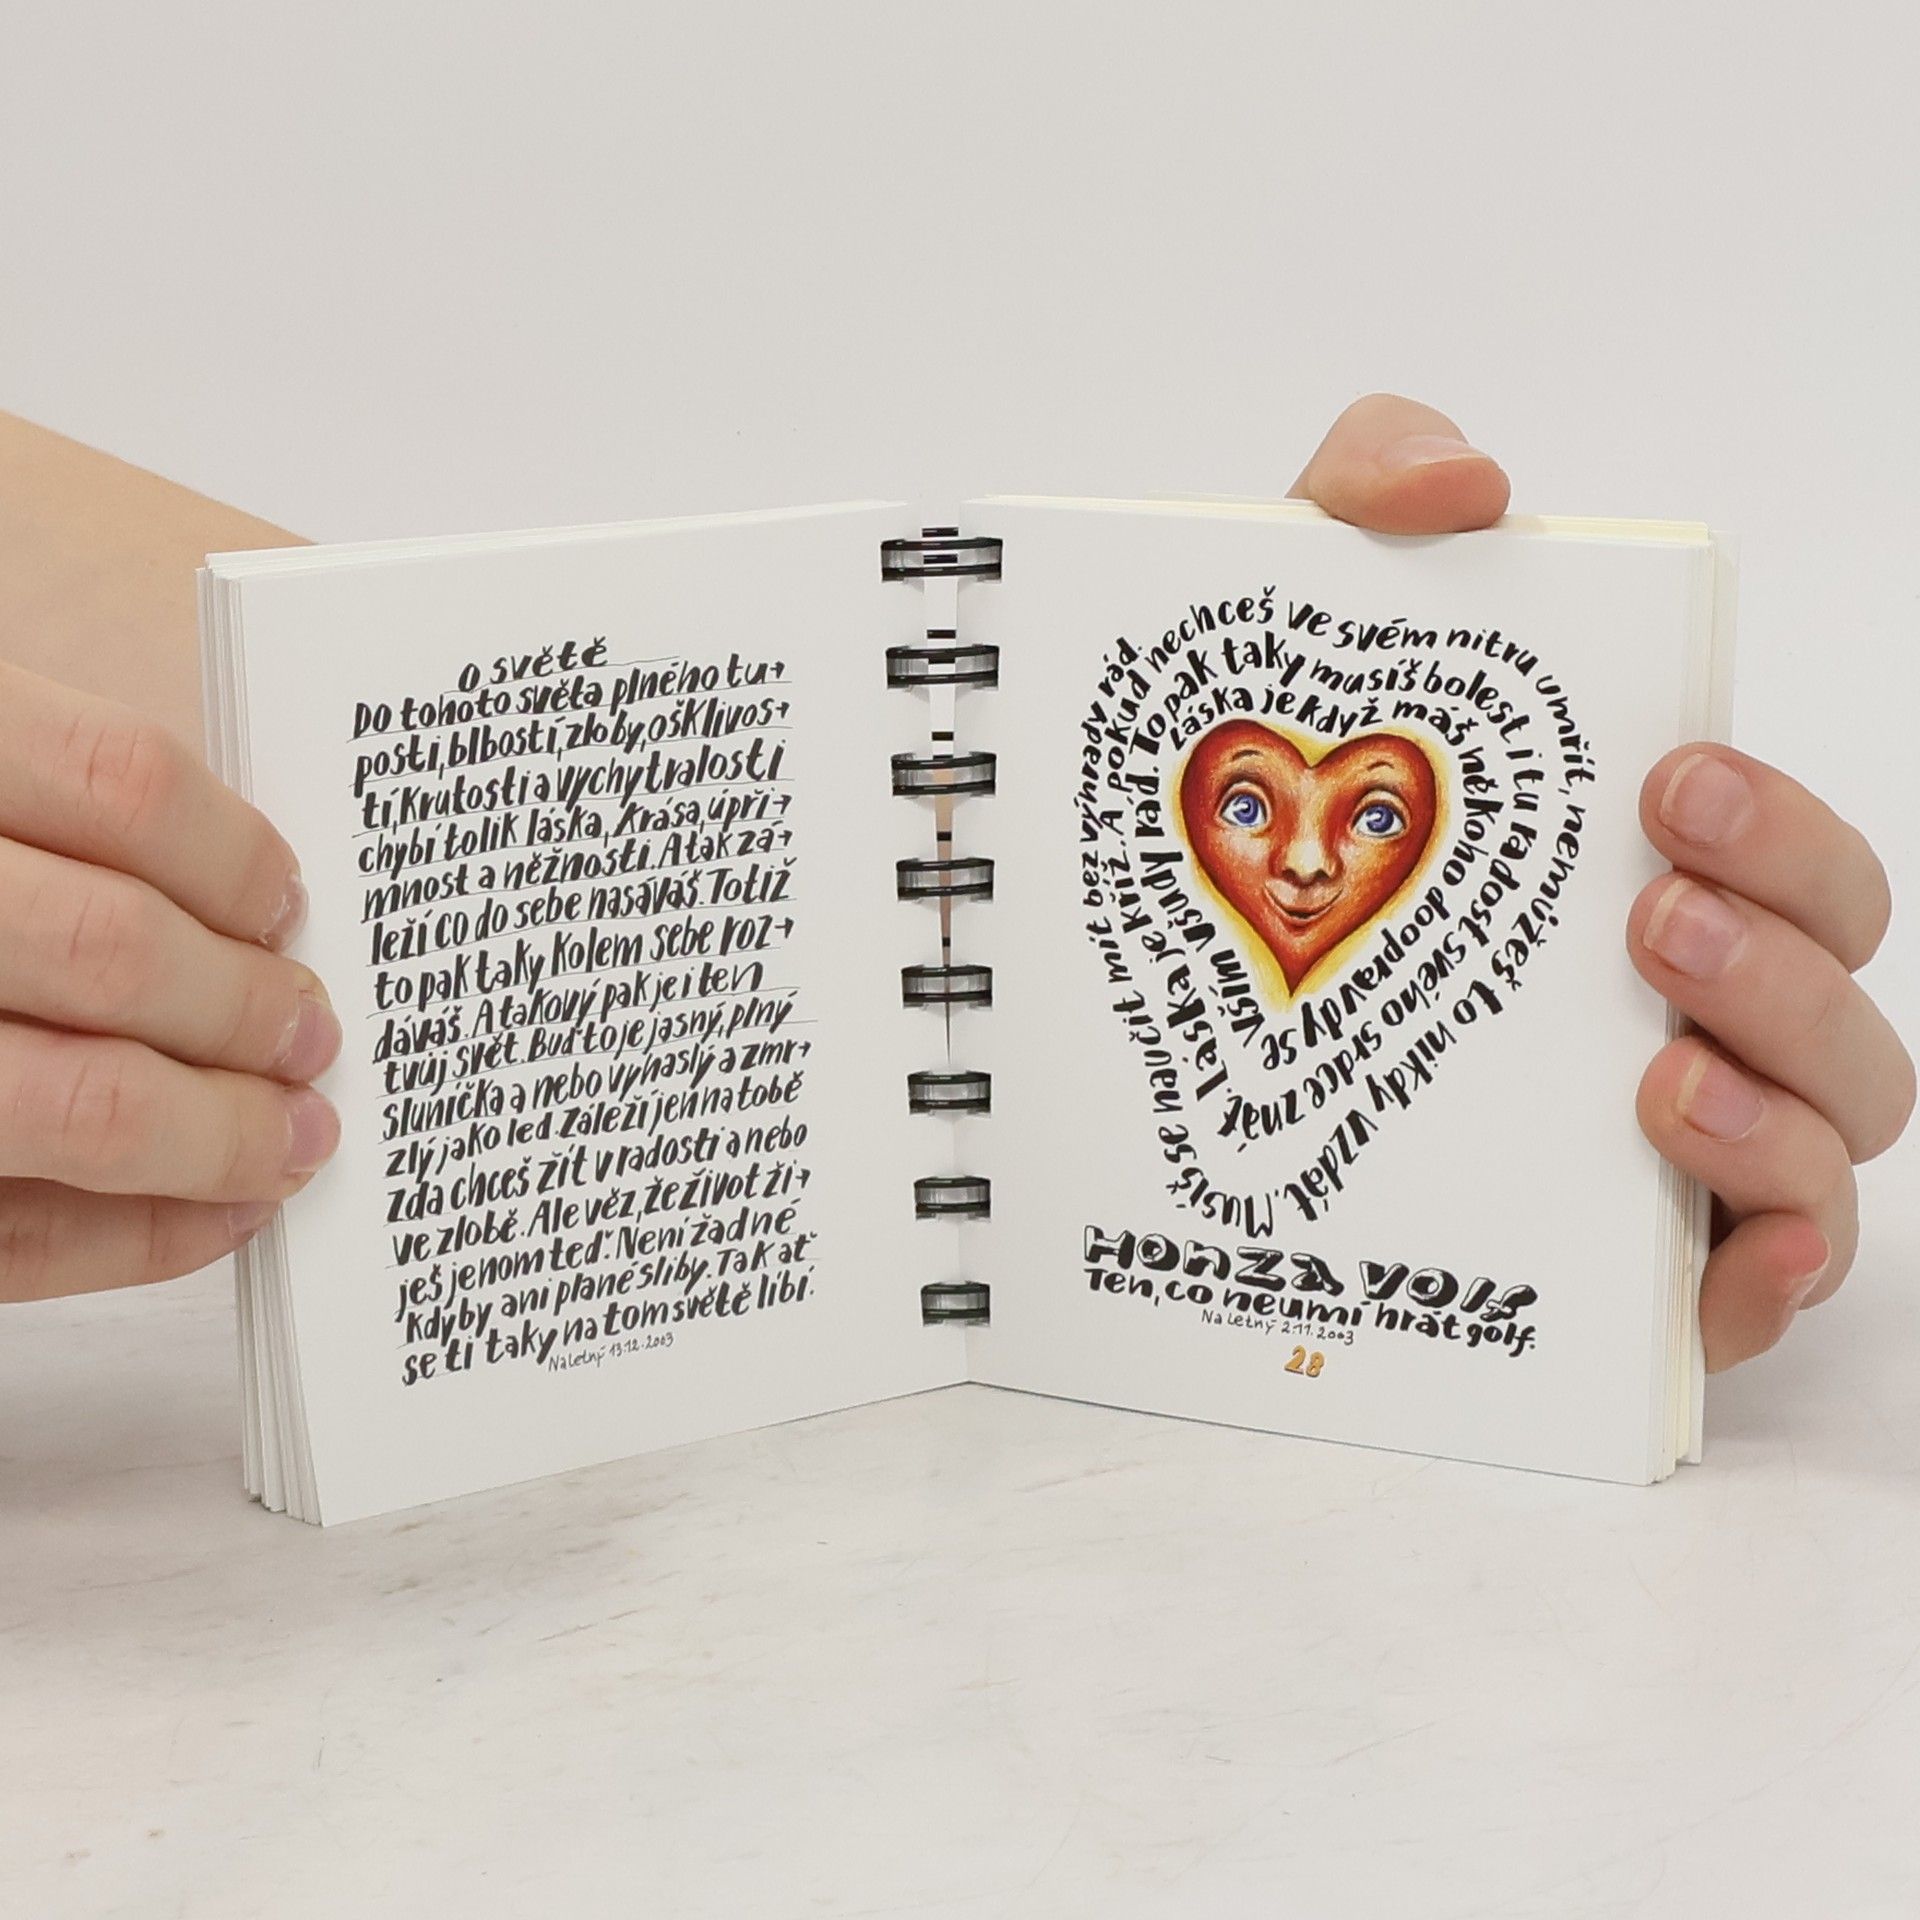 O světě
Do tohoto světa plného tu→
posti, blbosti, zloby, ošklivos→
tí, krutosti a vychytralosti
chybí tolik láska, krása, úpři→
mnost a něžnosti. A tak zá→
leží co do sebe nasáváš. Totiž
to pak taky kolem sebe roz→
dáváš. A takový pak je i ten
tvůj svět. Buď to je jasný, plný
sluníčka a nebo vyhaslý a zmr→
zlý jako led. Záleží jen na tobě
zda chceš žít v radosti a nebo
ve zlobě. Ale věz, že život ži→
ješ jenom teď. Není žádné
kdyby ani plané sliby. Tak ať
se ti taky na tom světě líbí.
Na Letný 13.12.2003
Láska je když máš někoho doopravdy se vším všudy rád.
To pak taky musíš bolest i tu radost svého srdce znát. Láska je kříž.
A pokud nechceš ve svém nitru umřít, nemůžeš to nikdy vzdát. Musíš se naučit mít bez výhrady rád.
HONZA VOLF
Ten, co neumí hrát golf.
Na Letný 2.11.2003
28